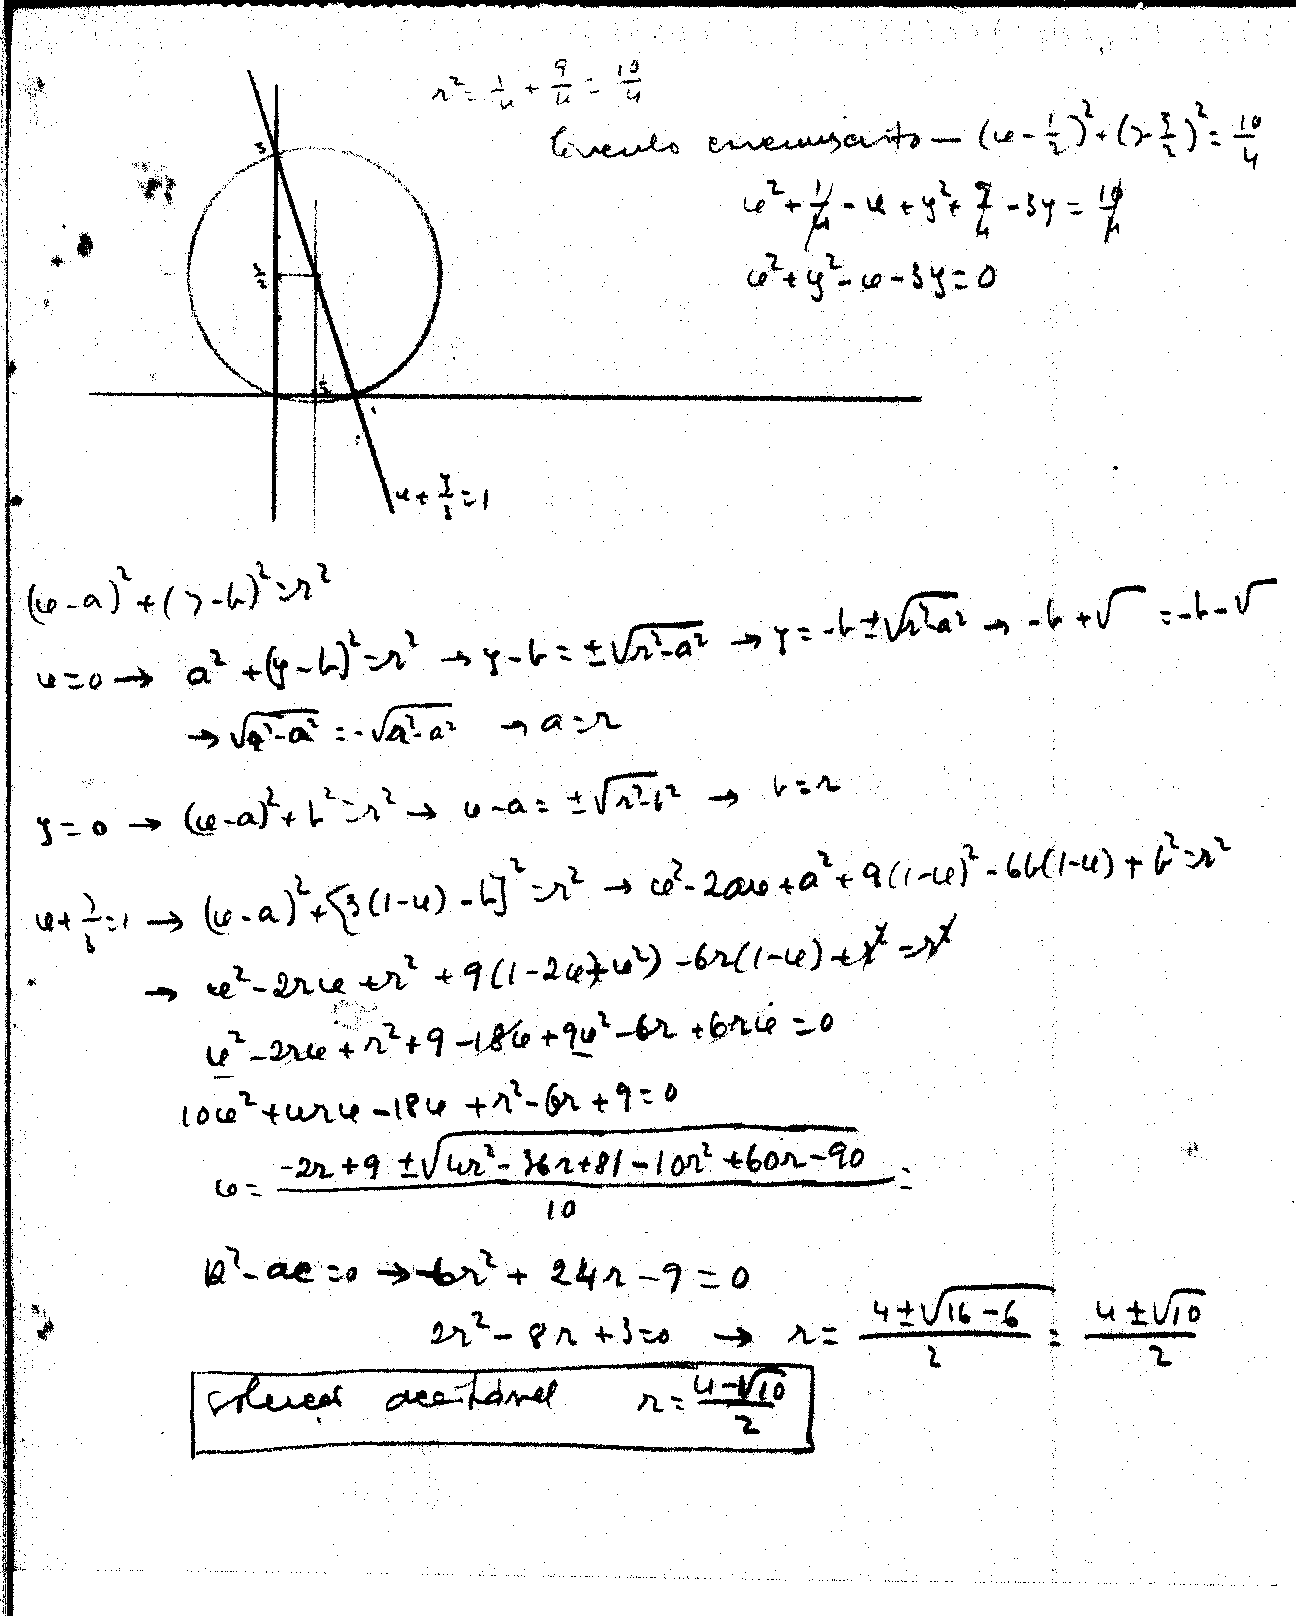 r² = 1/4 + 9/4 = 10/4
Círculo circunscrito — (x - 1/2)² + (y - 3/2)² = 10/4
x² + 1/4 - x + y² + 9/4 - 3y = 10/4
x² + y² - x - 3y = 0
3
3/2
x + y/3 = 1
(x - a)² + (y - b)² = r²
x = 0 → a² + (y - b)² = r² → y - b = ±√(r² - a²) → y = -b ± √(r² - a²) → -b + √ = -b - √
→ √(r² - a²) = -√(r² - a²) → a = r
y = 0 → (x - a)² + b² = r² → x - a = ±√(r² - b²) → b = r
x + y/3 = 1 → (x - a)² + [3(1 - x) - b]² = r² → x² - 2ax + a² + 9(1 - x)² - 6b(1 - x) + b² = r²
→ x² - 2rx + r² + 9(1 - 2x + x²) - 6r(1 - x) + r² = r²
x² - 2rx + r² + 9 - 18x + 9x² - 6r + 6rx = 0
10x² + 4rx - 18x + r² - 6r + 9 = 0
x = (-2r + 9 ± √(4r² - 36r + 81 - 10r² + 60r - 90))/10 =
b² - ac = 0 → -6r² + 24r - 9 = 0
2r² - 8r + 3 = 0 → r = (4 ± √(16 - 6))/2 = (4 ± √10)/2
solução aceitável r = (4 - √10)/2